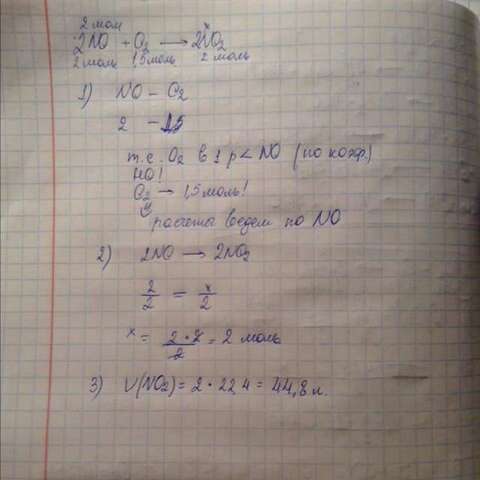 2 мол
2NO + O2 → 2NO2
2 моль 1,5 моль 2 моль
1) NO – O2
2 – 1,5
т.е. O2 в 2 р < NO (по коэф.)
НО!
O2 → 1,5 моль!
расчеты ведем по NO
2) 2NO → 2NO2
2/2 = x/2
x = 2·2/2 = 2 моль
3) V(NO2) = 2·22,4 = 44,8 л.